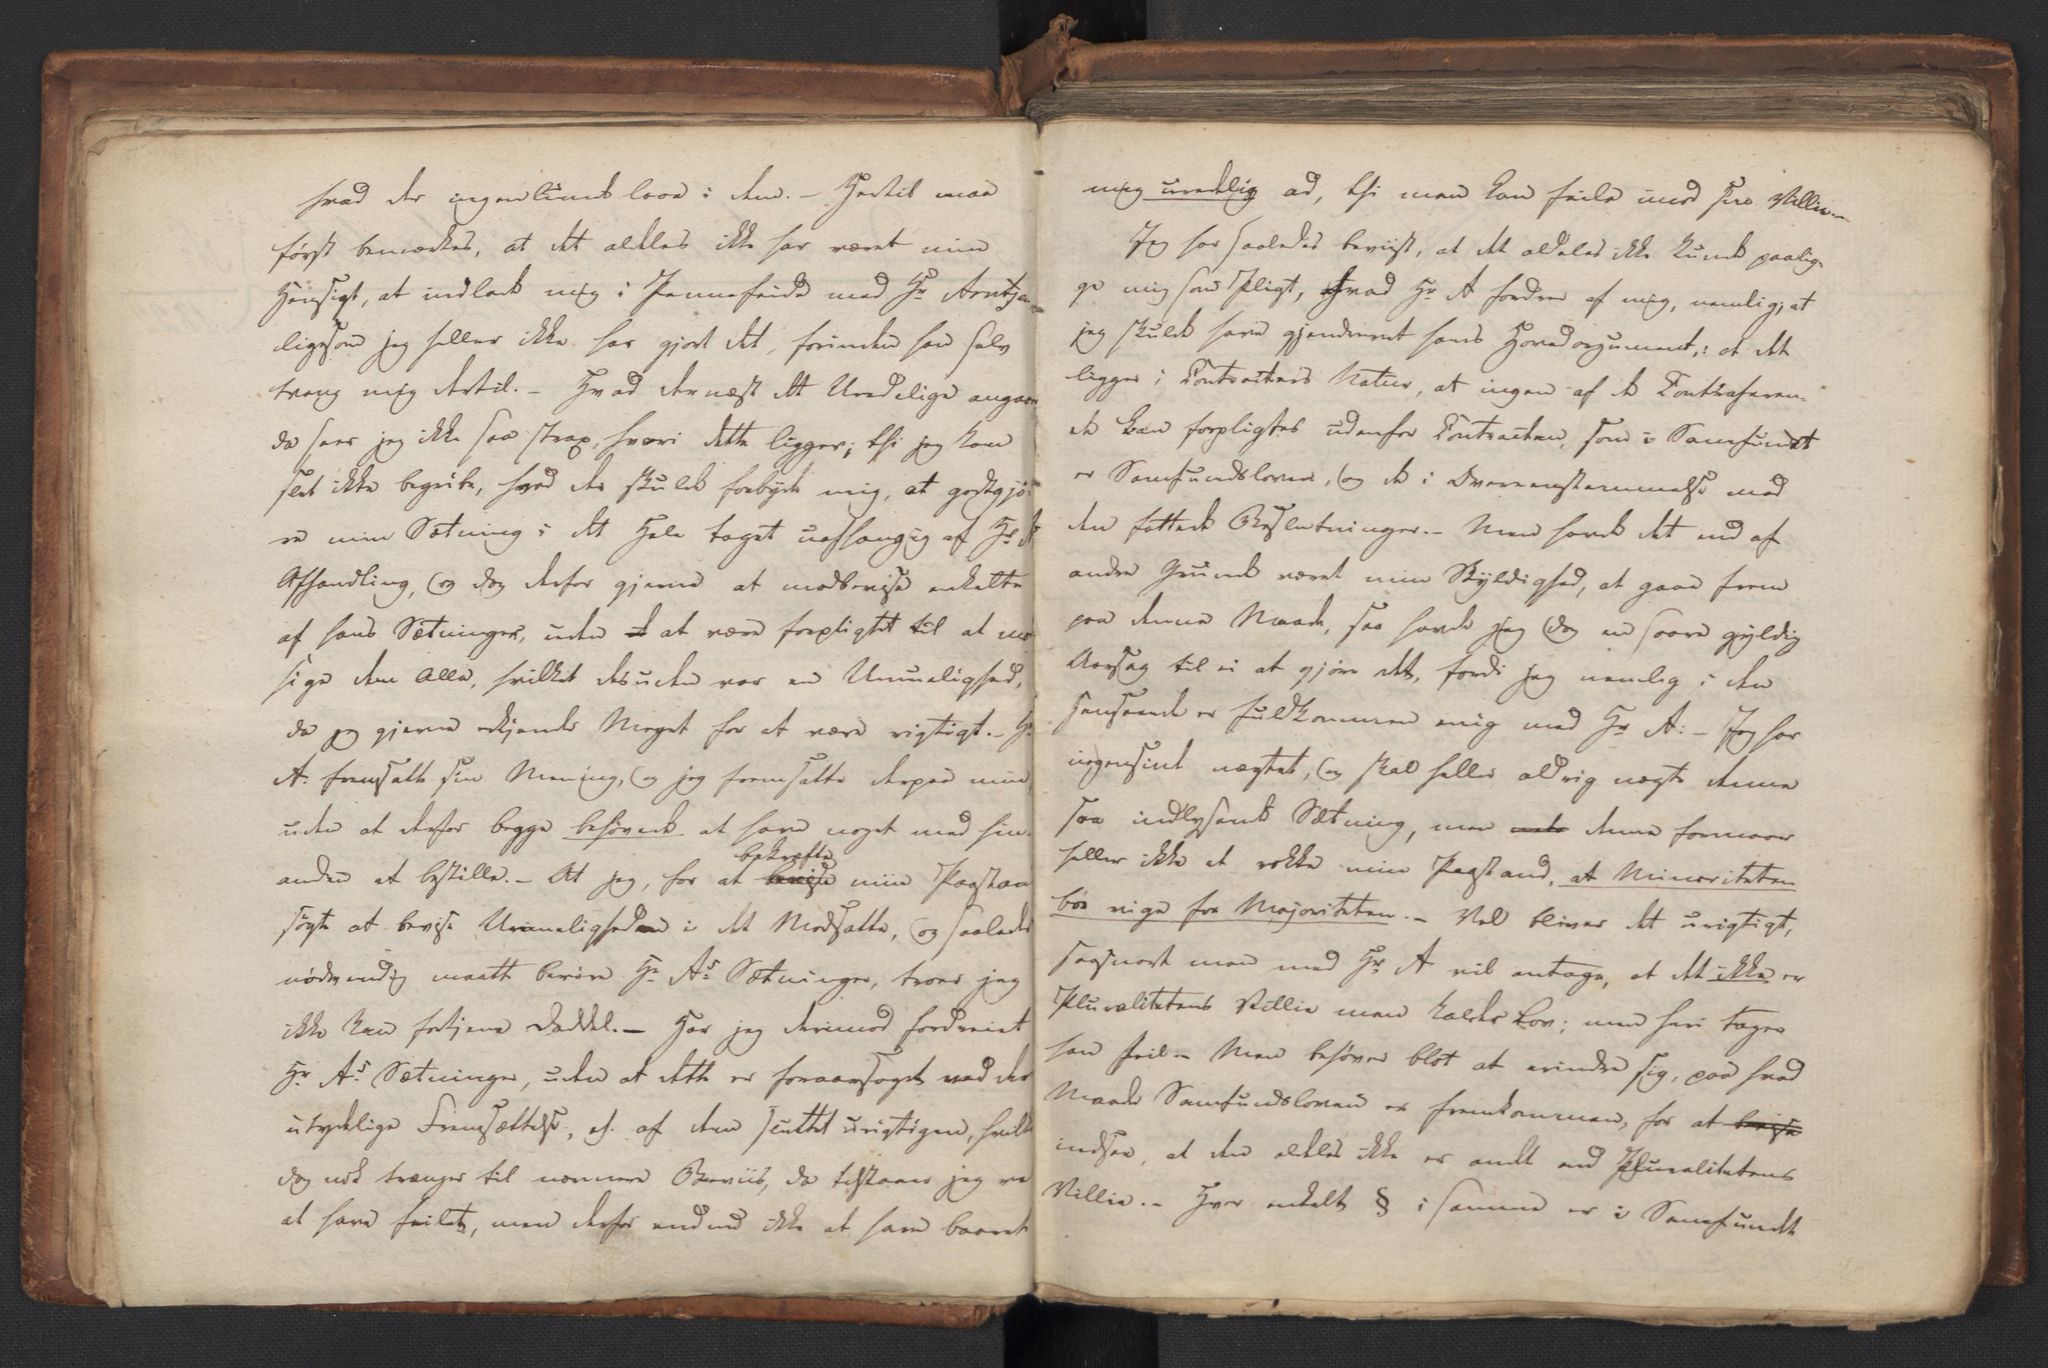 hvad der ingenlunde laae i dem. – Hertil maa
først bemærkes, at det aldeles ikke har været min
Hensigt, at indlade mig i Pennefeide med Hr Arntzen
ligesom jeg heller ikke har gjort det, forinden han selv
tvang mig dertil. – Hvad dernæst det Uredelige angaaer
da seer jeg ikke saa strax, hvori dette ligger; thi jeg kan
slet ikke begribe, hvad der skulde forbyde mig, at godtgjø-
re min Sætning i det Hele taget uafhængig af Hr A
Afhandling, og dog derfor gjerne at modbevise enkelte
af hans Sætninger, uden at være forpligtet til at mod
sige dem Alle, hvilket desuden var en Umuelighed,
da jeg gjerne erkjender Meget for at være rigtigt. – Hr
A: fremsatte sin Mening, og jeg fremsatte derpaa min,
uden at derfor begge behøvede at have noget med hin-
anden at bestille. – At jeg, for at bevise bekræfte min Paastand
søgte at bevise Urimeligheden i det Modsatte, og saaledes
nødvendig maatte berøre Hr As Sætninger, troer jeg
ikke kan fortjene Daddel. – Har jeg derimod fordreiet
Hr As Sætninger, uden at dette er foraarsaget ved den
utydelige Fremsættelse, el. af dem sluttet urigtigen, hvilket
dog nok trænger til nærmere Beviis, da tilstaaer jeg vel
at have feilet, men derfor endnu ikke at have baaret
mig uredelig ad, thi man kan feile imod sin Villie. –
Jeg har saaledes beviist, at det aldeles ikke kunde paalig-
ge mig som Pligt, hvad Hr A fordrer af mig, nemlig, at
jeg skulde have gjendrevet hans Hovedargument: at det
ligger i Contractens Natur, at ingen af de Contraheren-
de kan forpligtes udenfor Contracten, som i Samfundet
er Samfundsloven, og de i Overeensstemmelse med
den fattede Beslutninger. – Men havde det end af
andre Grunde været min Skyldighed, at gaae frem
paa denne Maade, saa havde jeg dog en saare gyldig
Aarsag til ei at gjøre det, fordi jeg nemlig i den
henseende er fuldkommen enig med Hr A: – Jeg har
ingensinde nægtet, og skal heller aldrig nægte denne
saa indlysende Sætning, men denne formaaer
heller ikke at rokke min Paastand, at Minoriteten
bør vige for Majoriteten. – Vel bliver det urigtigt,
saasnart man med Hr A vil antage, at det ikke er
Pluralitetens Villie man kalder Lov; men heri tager
han feil. – Man behøver blot at erindre sig, paa hvad
Maade Samfundsloven er fremkommen, for at bevise
indsee, at den aldeles ikke er andet end Pluralitetens
Villie. – Hver enkelt § i samme er i Samfundet